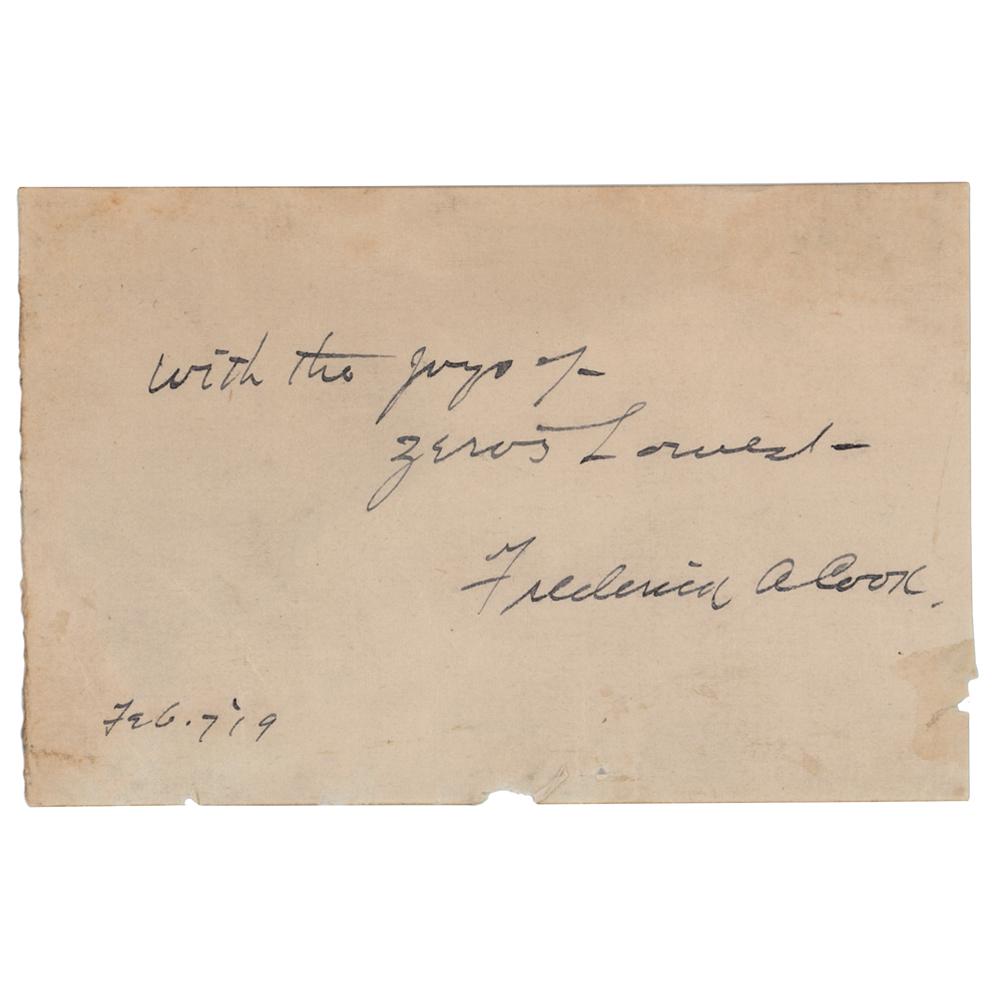 with the joys of
zero's Lowest-
Frederick A Cook.
Feb. 7'19